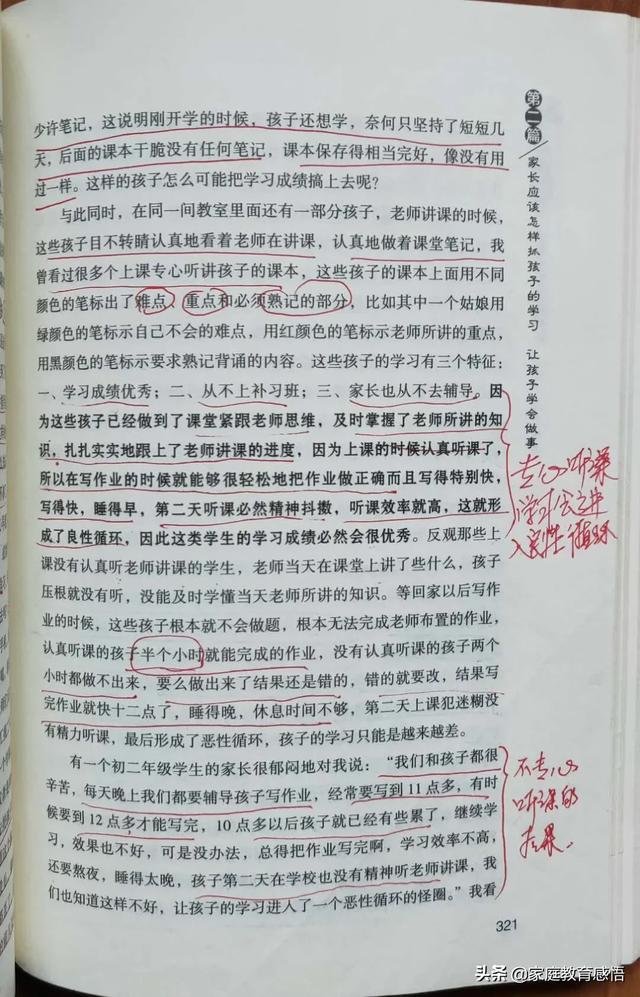 少许笔记，这说明刚开学的时候，孩子还想学，奈何只坚持了短短几
天，后面的课本干脆没有任何笔记，课本保存得相当完好，像没有用
过一样。这样的孩子怎么可能把学习成绩搞上去呢？
与此同时，在同一间教室里面还有一部分孩子，老师讲课的时候，
这些孩子目不转睛认真地看着老师在讲课，认真地做着课堂笔记，我
曾看过很多个上课专心听讲孩子的课本，这些孩子的课本上面用不同
颜色的笔标出了难点、重点和必须熟记的部分，比如其中一个姑娘用
绿颜色的笔标示自己不会的难点，用红颜色的笔标示老师所讲的重点，
用黑颜色的笔标示要求熟记背诵的内容。这些孩子的学习有三个特征：
一、学习成绩优秀；二、从不上补习班；三、家长也从不去辅导。因
为这些孩子已经做到了课堂紧跟老师思维，及时掌握了老师所讲的知
识，扎扎实实地跟上了老师讲课的进度，因为上课的时候认真听课了，
所以在写作业的时候就能够很轻松地把作业做正确而且写得特别快，
写得快，睡得早，第二天听课必然精神抖擞，听课效率就高，这就形
成了良性循环，因此这类学生的学习成绩必然会很优秀。反观那些上
课没有认真听老师讲课的学生，老师当天在课堂上讲了些什么，孩子
压根就没有听，没能及时学懂当天老师所讲的知识。等回家以后写作
业的时候，这些孩子根本就不会做题，根本无法完成老师布置的作业，
认真听课的孩子半个小时就能完成的作业，没有认真听课的孩子两个
小时都做不出来，要么做出来了结果还是错的，错的就要改，结果写
完作业就快十二点了，睡得晚，休息时间不够，第二天上课犯迷糊没
有精力听课，最后形成了恶性循环，孩子的学习只能是越来越差。
有一个初二年级学生的家长很郁闷地对我说：“我们和孩子都很
辛苦，每天晚上我们都要辅导孩子写作业，经常要写到11点多，有时
候要到12点多才能写完，10点多以后孩子就已经有些累了，继续学
习，效果也不好，可是没办法，总得把作业写完啊，学习效率不高，
还要熬夜，睡得太晚，孩子第二天在学校也没有精神听老师讲课，我
们也知道这样不好，让孩子的学习进入了一个恶性循环的怪圈。”我看
第二篇
家长应该怎样抓孩子的学习 让孩子学会做事
专心听课
学习会进
入良性循环
不专心
听课的
后果
321
头条 @家庭教育感悟